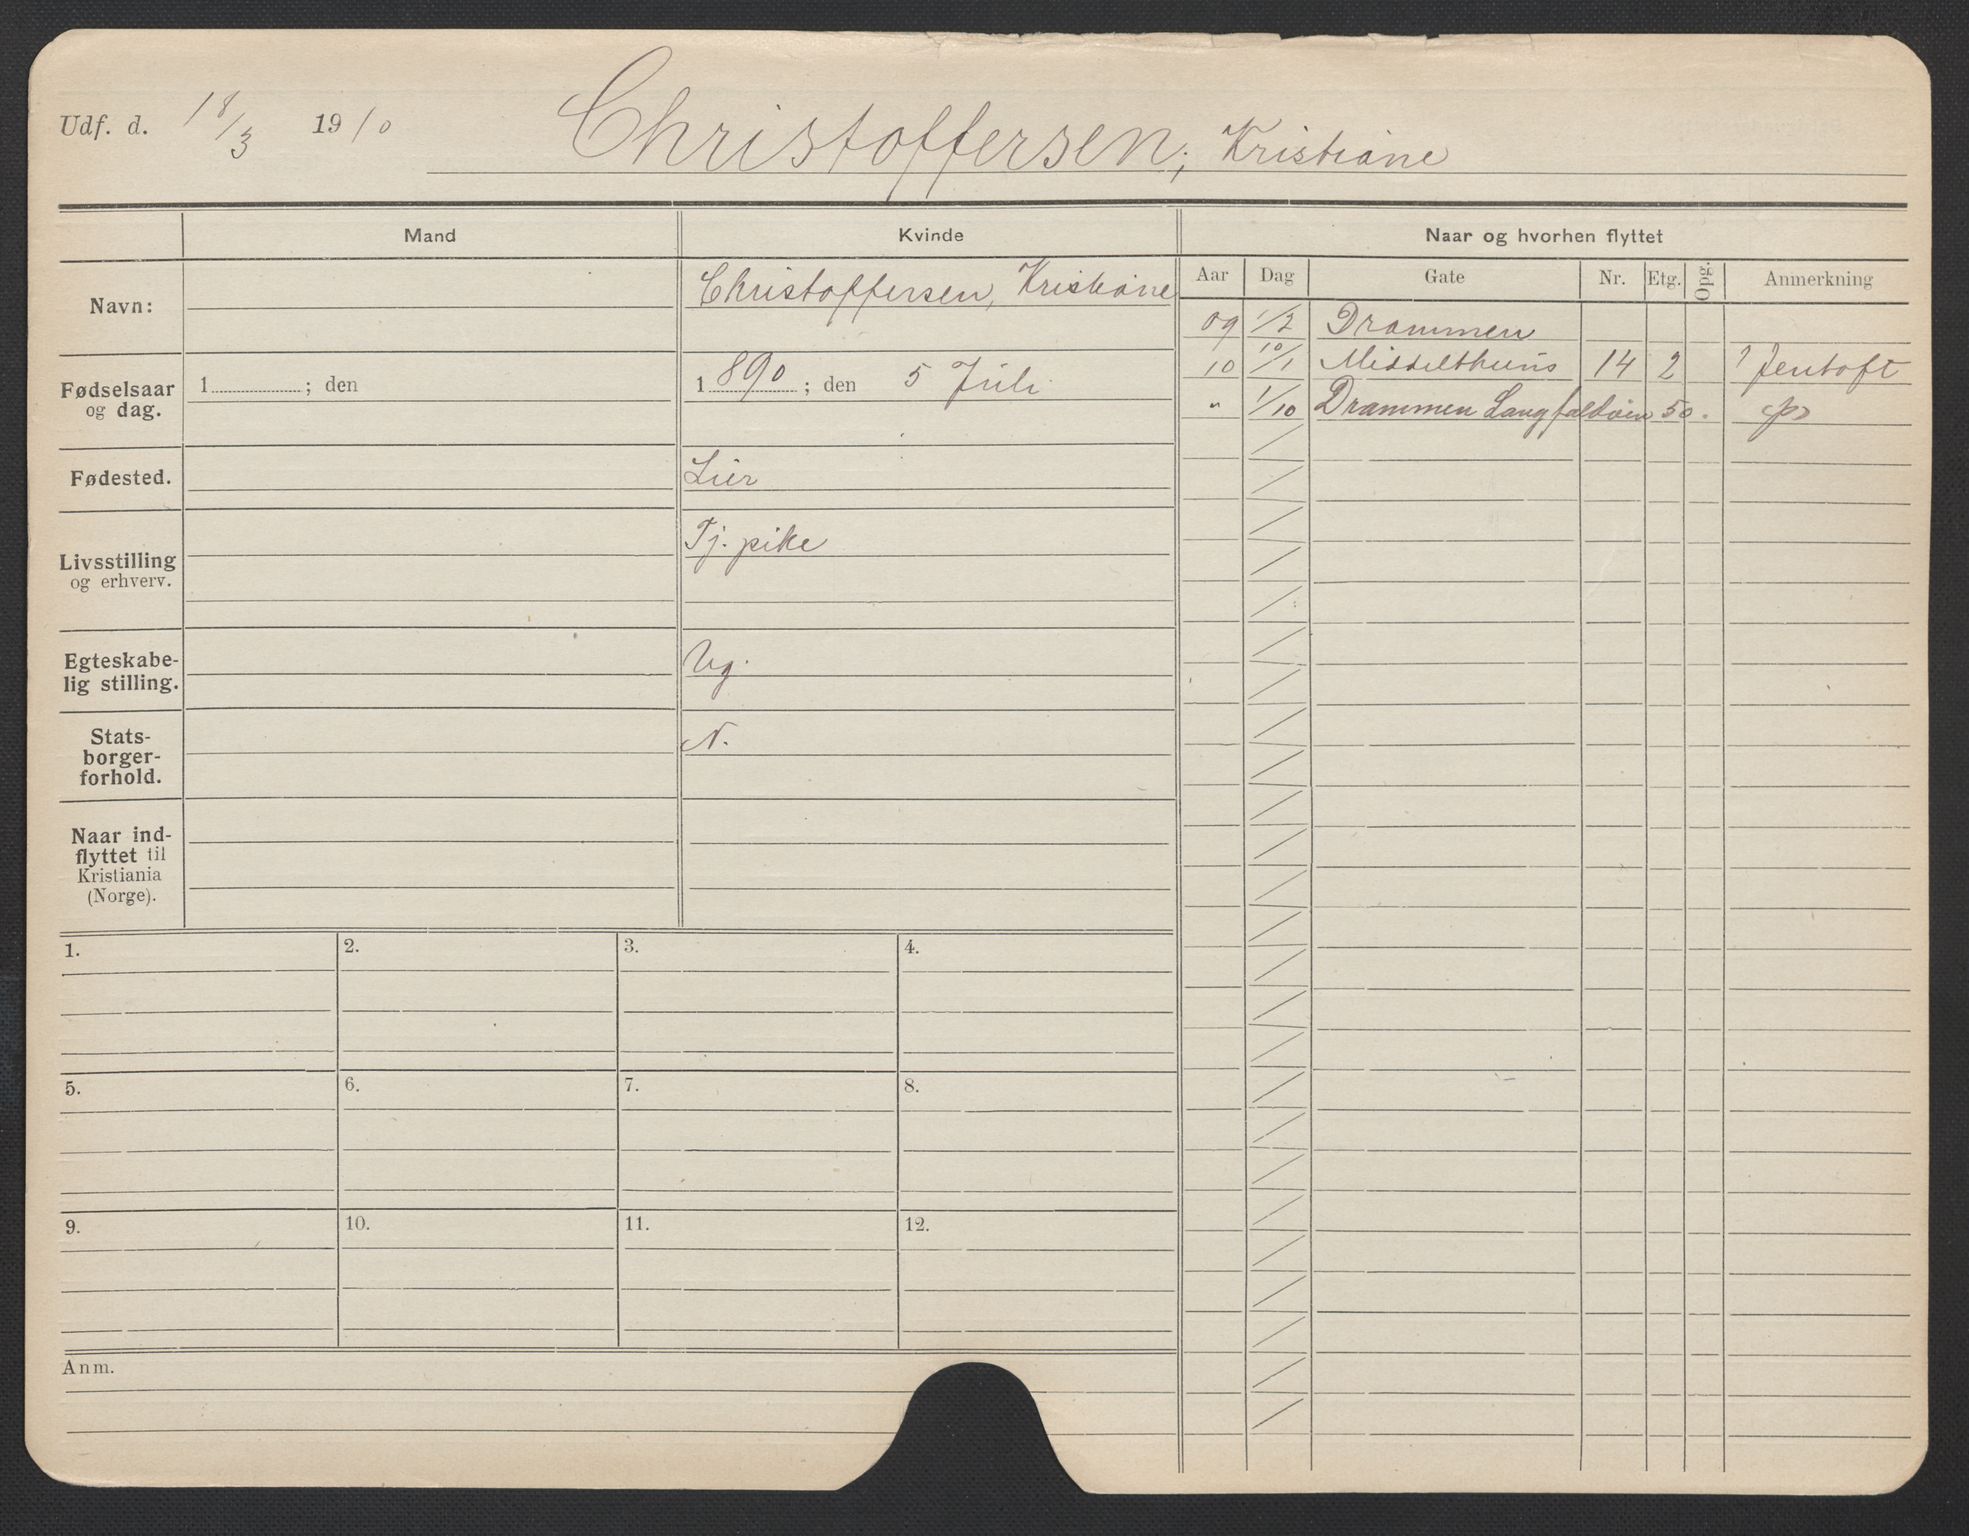 Udf. d. 18/3 1910 Christoffersen, Kristiane
Mand Kvinde Naar og hvorhen flyttet
Aar Dag Gate Nr. Etg. Opg. Anmerkning
Navn: Christoffersen, Kristiane
09 1/2 Drammen
10 10/1 Middelthuns 14 2 Jentoft
" 1/10 Drammen 50.
Fødselsaar
og dag. 1 ; den 1 890 ; den 5 Juli
Fødested. Lier
Livsstilling
og erhverv. Tj. pike
Egteskabe-
lig stilling. Ug.
Stats-
borger-
forhold. N.
Naar ind-
flyttet til
Kristiania
(Norge).
1. 2. 3. 4.
5. 6. 7. 8.
9. 10. 11. 12.
Anm.